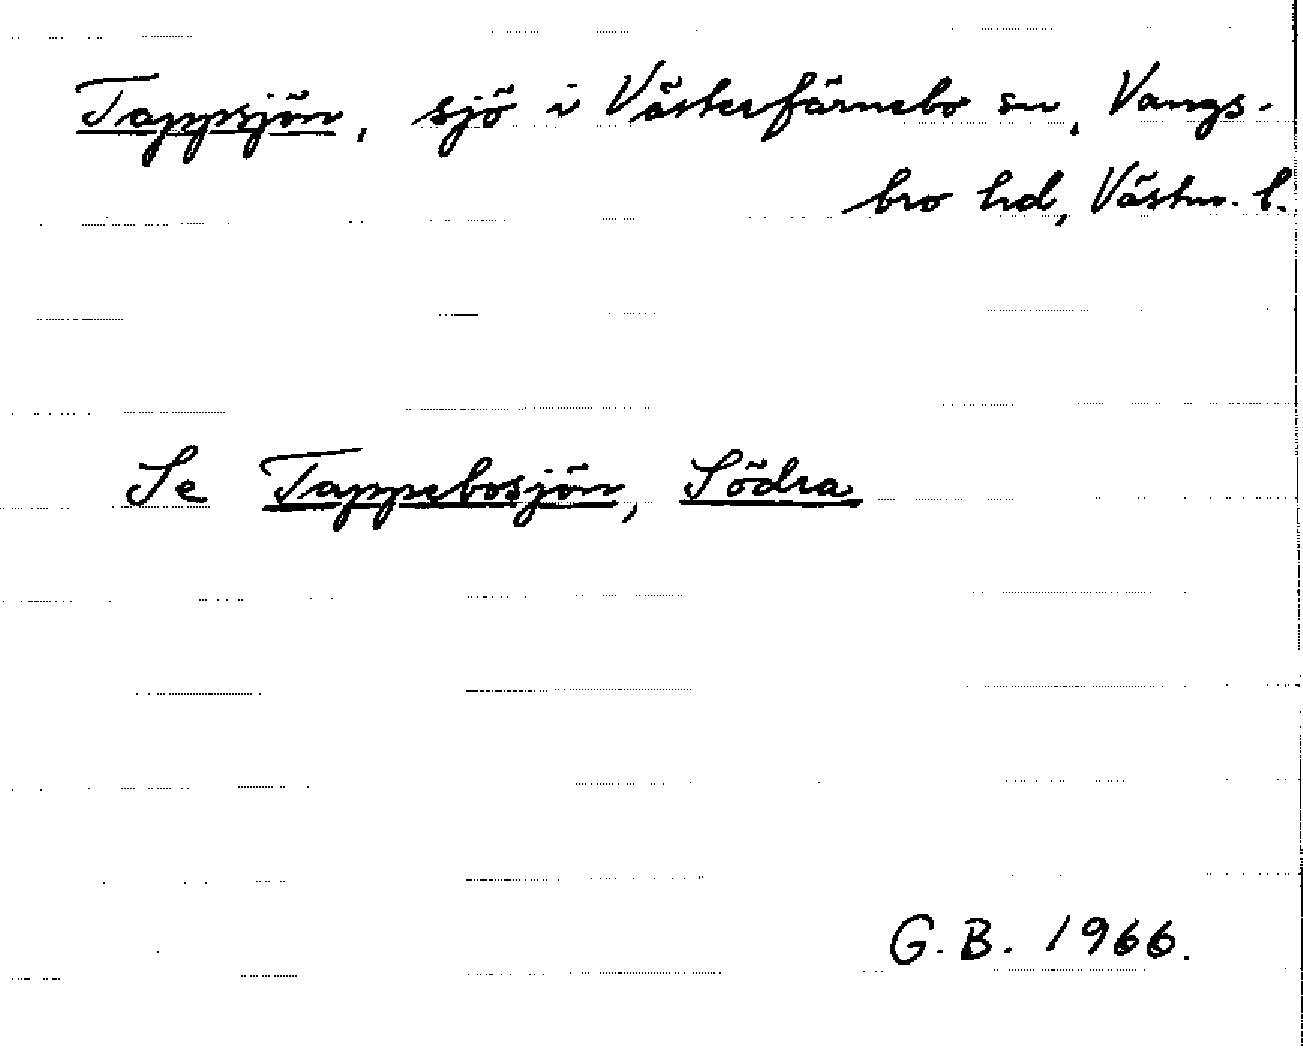 Tappsjön, sjö i Västerfärnebo sn, Vangs-
bro hd, Västm. l.
Se Tappebosjön, Södra
G.B. 1966.